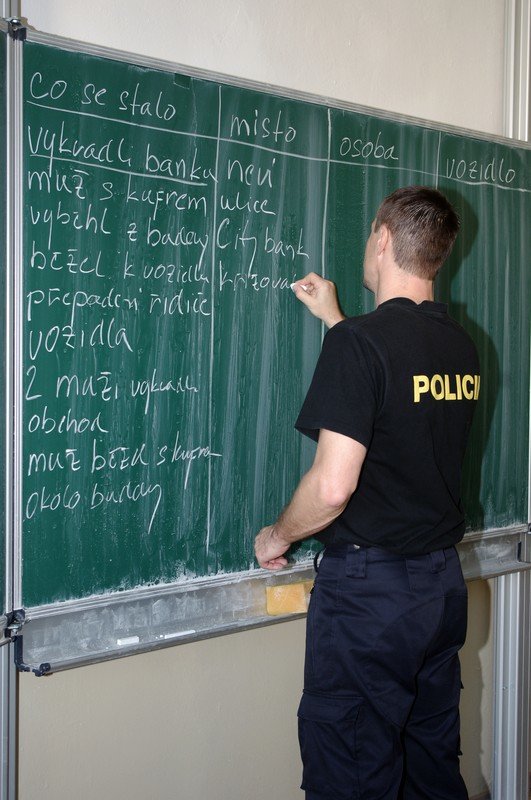 co se stalo
misto
osoba
vozidlo
vykradli banku
muž s kufrem
vyběhl z budovy
běžel k vozidlu
přepadení řidiče
vozidla
2 muži vykradli
obchod
muž běžel s kufrem
okolo budovy
neví
ulice
City bank
križova
POLICI